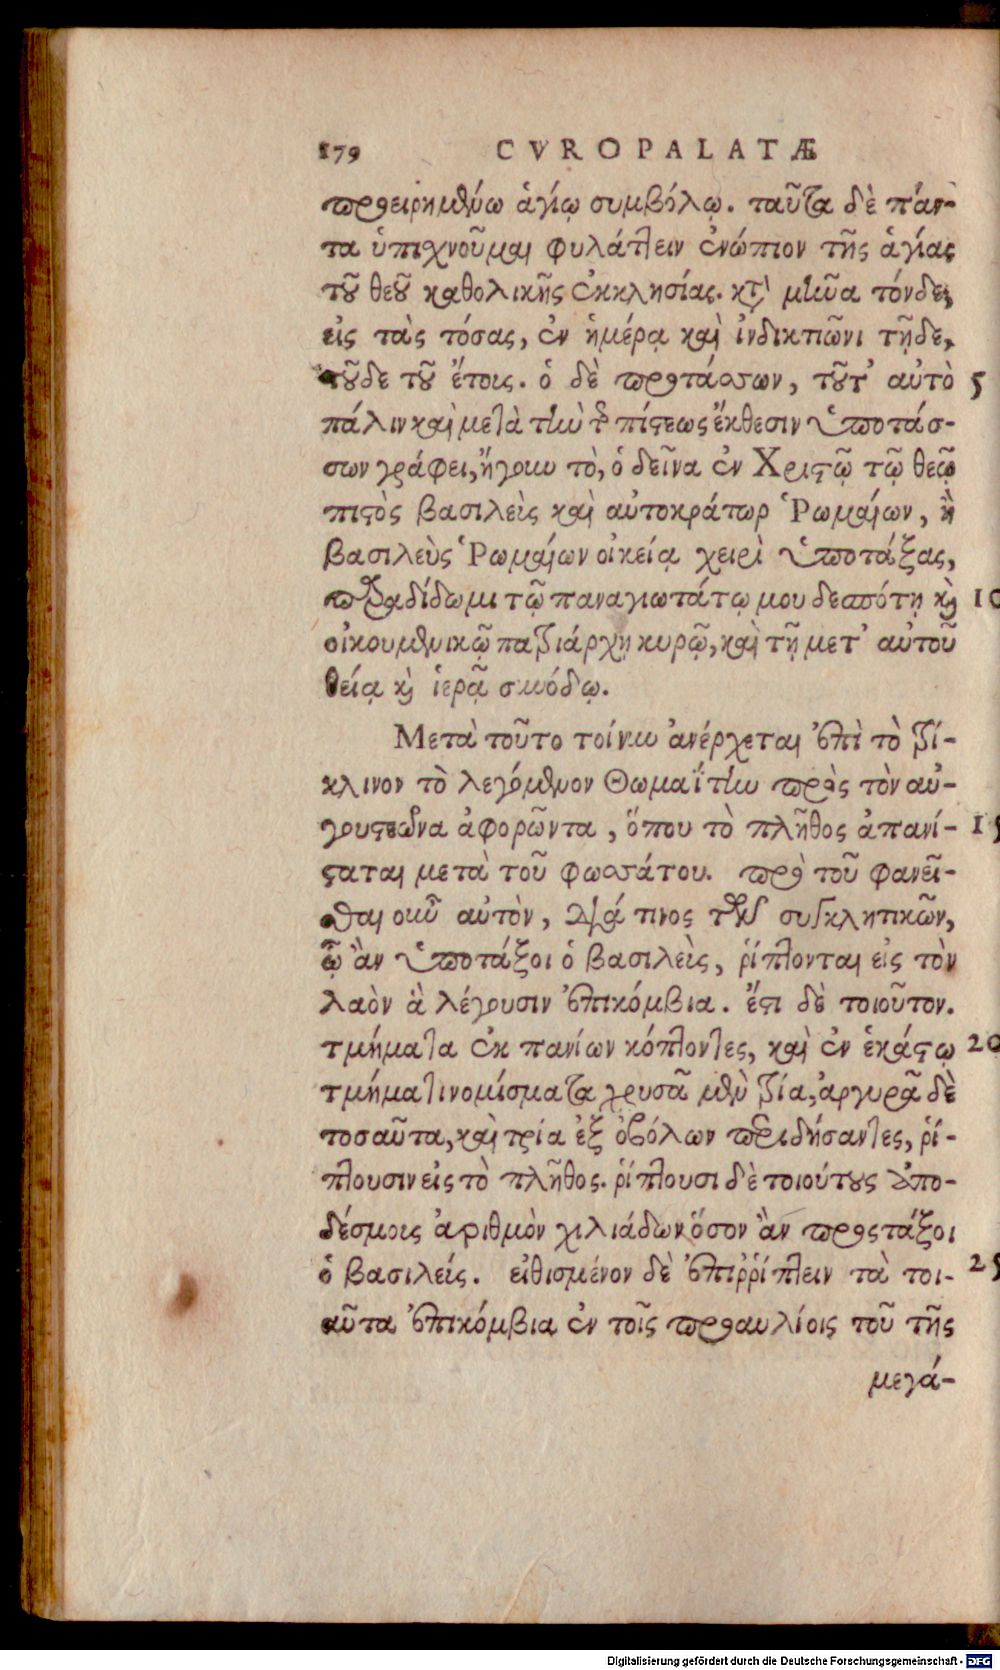 179 CVROPALATÆ
προειρημένῳ ἁγίῳ συμβόλῳ. ταῦτα δὲ πάν-
τα ὑπιχνοῦμαι φυλάττειν ἐνώπιον τῆς ἁγίας
τοῦ θεοῦ καθολικῆς ἐκκλησίας. κτ̀ μῆνα τόνδε,
εἰς τὰς τόσας, ἐν ἡμέρᾳ καὶ ἰνδικτιῶνι τῇδε,
τοῦδε τοῦ ἔτοις. ὁ δὲ προτάσσων, τοῦτ' αὐτὸ 5
πάλιν καὶ μετὰ τὴν τῆς πίστεως ἔκθεσιν ὑποτάσ-
σων γράφει, ἤγουν τὸ, ὁ δεῖνα ἐν Χριστῷ τῷ θεῷ
πιστὸς βασιλεὶς καὶ αὐτοκράτωρ Ῥωμαίων, ἢ
βασιλεὺς Ῥωμαίων οἰκείᾳ χειρὶ ὑποτάξας,
παραδίδωμι τῷ παναγιωτάτῳ μου δεσπότῃ καὶ 10
οἰκουμενικῷ πατριάρχῃ κυρῷ, καὶ τῇ μετ' αὐτοῦ
θείᾳ καὶ ἱερᾷ συνόδῳ.
Μετὰ τοῦτο τοίνυν ἀνέρχεται ἐπὶ τὸ τρί-
κλινον τὸ λεγόμενον Θωμαΐτην πρὸς τὸν αὐ-
γουστεῶνα ἀφορῶντα, ὅπου τὸ πλῆθος ἀπανί- 15
σταται μετὰ τοῦ φωσσάτου. πρὸ τοῦ φανεῖ-
σθαι οὖν αὐτὸν, διά τινος τῶν συγκλητικῶν,
ᾧ ἂν ὑποτάξοι ὁ βασιλεὶς, ῥίπτονται εἰς τὸν
λαὸν ἃ λέγουσιν ἐπικόμβια. ἔστι δὲ τοιοῦτον.
τμήματα ἐκ πανίων κόπτοντες, καὶ ἐν ἑκάστῳ 20
τμήματι νομίσματα χρυσᾶ μὲν τρία, ἀργυρᾶ δὲ
τοσαῦτα, καὶ τρία ἐξ ὀβόλων περιδήσαντες, ῥί-
πτουσιν εἰς τὸ πλῆθος. ῥίπτουσι δὲ τοιούτους ἀπο-
δέσμοις ἀριθμὸν χιλιάδων ὅσον ἂν προςτάξοι
ὁ βασιλείς. εἰθισμένον δὲ ἐπιῤῥίπτειν τὰ τοι- 25
αῦτα ἐπικόμβια ἐν τοῖς προαυλίοις τοῦ τῆς
μεγά-
Digitalisierung gefördert durch die Deutsche Forschungsgemeinschaft - DFG